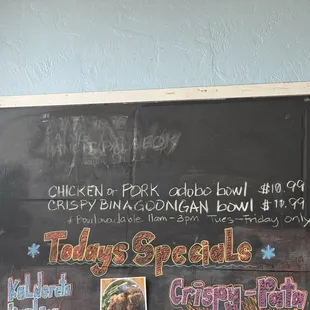 CHICKEN or PORK adobo bowl $10.99
CRISPY BINAGOONGAN bowl $11.99
available 11am - 3pm Tues-Friday only
Todays Specials
Kaldereta
Crispy-Pata